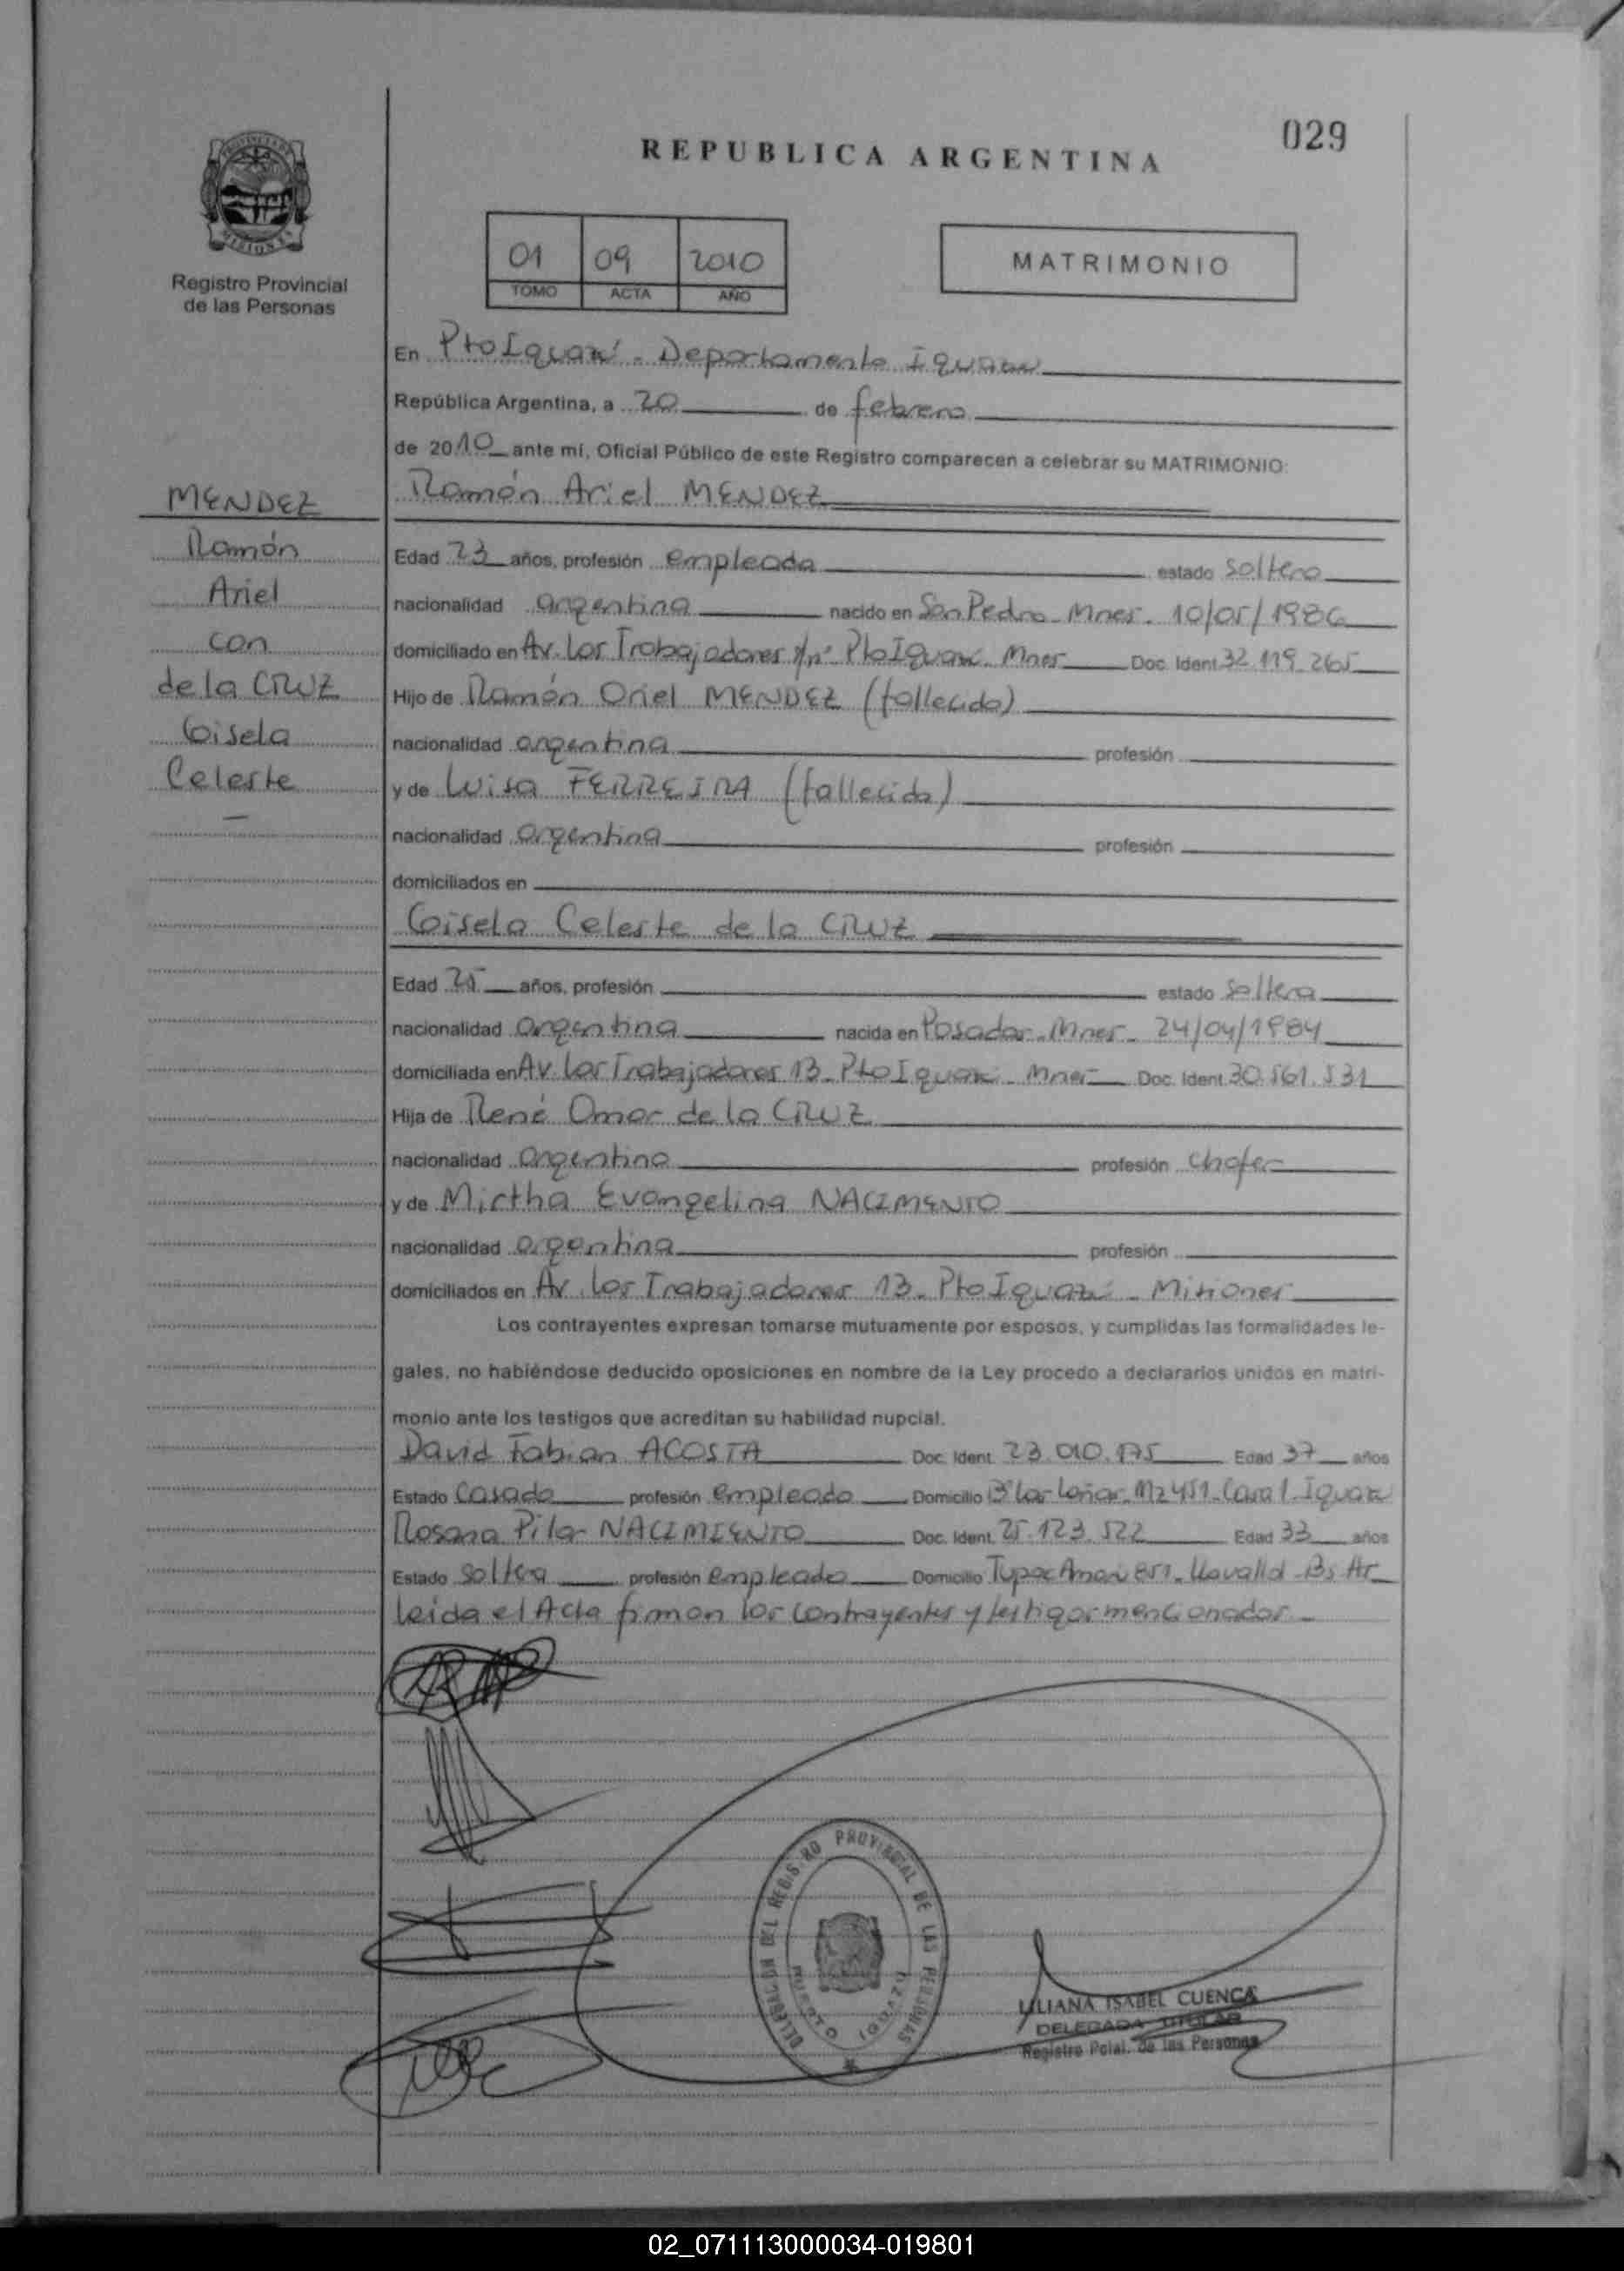 029
REPUBLICA ARGENTINA
PROVINCIA DE
MISIONES
Registro Provincial
de las Personas
01 09 2010
TOMO ACTA AÑO
MATRIMONIO
En Pto Iguazú - Departamento Iguazú
República Argentina, a 20 de febrero
de 2010 ante mí, Oficial Público de este Registro comparecen a celebrar su MATRIMONIO:
MENDEZ
Ramón
Ariel
con
de la CRUZ
Gisela
Celeste
Ramón Ariel MENDEZ
Edad 23 años, profesión empleado estado soltero
nacionalidad argentina nacido en San Pedro - Mnes - 10/05/1986
domiciliado en Av. Los Trabajadores s/nº Pto Iguazú Mnes Doc. Ident. 32.119.265
Hijo de Ramón Oriel MENDEZ (fallecido)
nacionalidad argentina profesión
y de Luisa FERREIRA (fallecida)
nacionalidad argentina profesión
domiciliados en
Gisela Celeste de la CRUZ
Edad 25 años, profesión estado soltera
nacionalidad argentina nacida en Posadas - Mnes - 24/04/1984
domiciliada en Av. Los Trabajadores 13 - Pto Iguazú - Mnes Doc. Ident. 30.561.531
Hija de René Omar de la CRUZ
nacionalidad argentina profesión chofer
y de Mirtha Evangelina NACIMENTO
nacionalidad argentina profesión
domiciliados en Av. Los Trabajadores 13 - Pto Iguazú - Misiones
Los contrayentes expresan tomarse mutuamente por esposos, y cumplidas las formalidades le-
gales, no habiéndose deducido oposiciones en nombre de la Ley procedo a declararlos unidos en matri-
monio ante los testigos que acreditan su habilidad nupcial.
David Fabian ACOSTA Doc. Ident. 23.010.175 Edad 37 años
Estado Casado profesión empleado Domicilio Bº Las Leñas - Mz 451 - Casa 1 - Iguazú
Rosana Pilar NACIMIENTO Doc. Ident. 25.123.522 Edad 33 años
Estado soltera profesión empleada Domicilio Tupac Amaru 851 - Bs As
leida el Acta firman los contrayentes y testigos mencionados -
DELEGACION DEL REGISTRO PROVINCIAL DE LAS PERSONAS
PUERTO IGUAZU
LILIANA ISABEL CUENCA
DELEGADA TITULAR
Registro Pcial. de las Personas
02_071113000034-019801